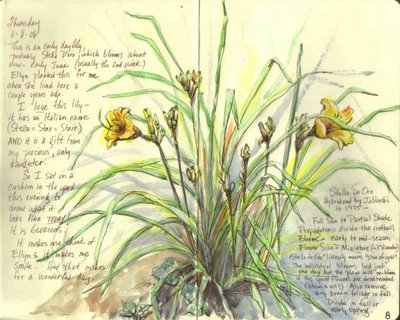 Thursday
6-8-06
This is an early daylily,
probably Stella D'oro, which blooms about
now - early June (usually the 2nd week.)
Ellyn planted this for me
when she lived here a
couple years ago.
I love this lily-
it has an Italian name
(Stella = Star = Starr)
AND it is a gift from
my precious, only
daughter.
So I sat on a
cushion in the yard
this evening to
draw what it
looks like TODAY.
It is Glorious.
It makes me think of
Ellyn & it makes me
smile. And that makes
for a wonderful day.
Stella De Oro
Hybridized by Jablonski
in 1975
Full Sun to Partial Shade
Propagation: divide the rootball
Blooms - early to mid-season
Flower Size - Miniature
Stella de Oro "literally means "Star of gold".
The individual blooms last just
one day but the plant will re-bloom
if the spent flowers are removed
(stem & all). Also remove
any brown foliage in fall.
Divide in fall or
early spring.
8